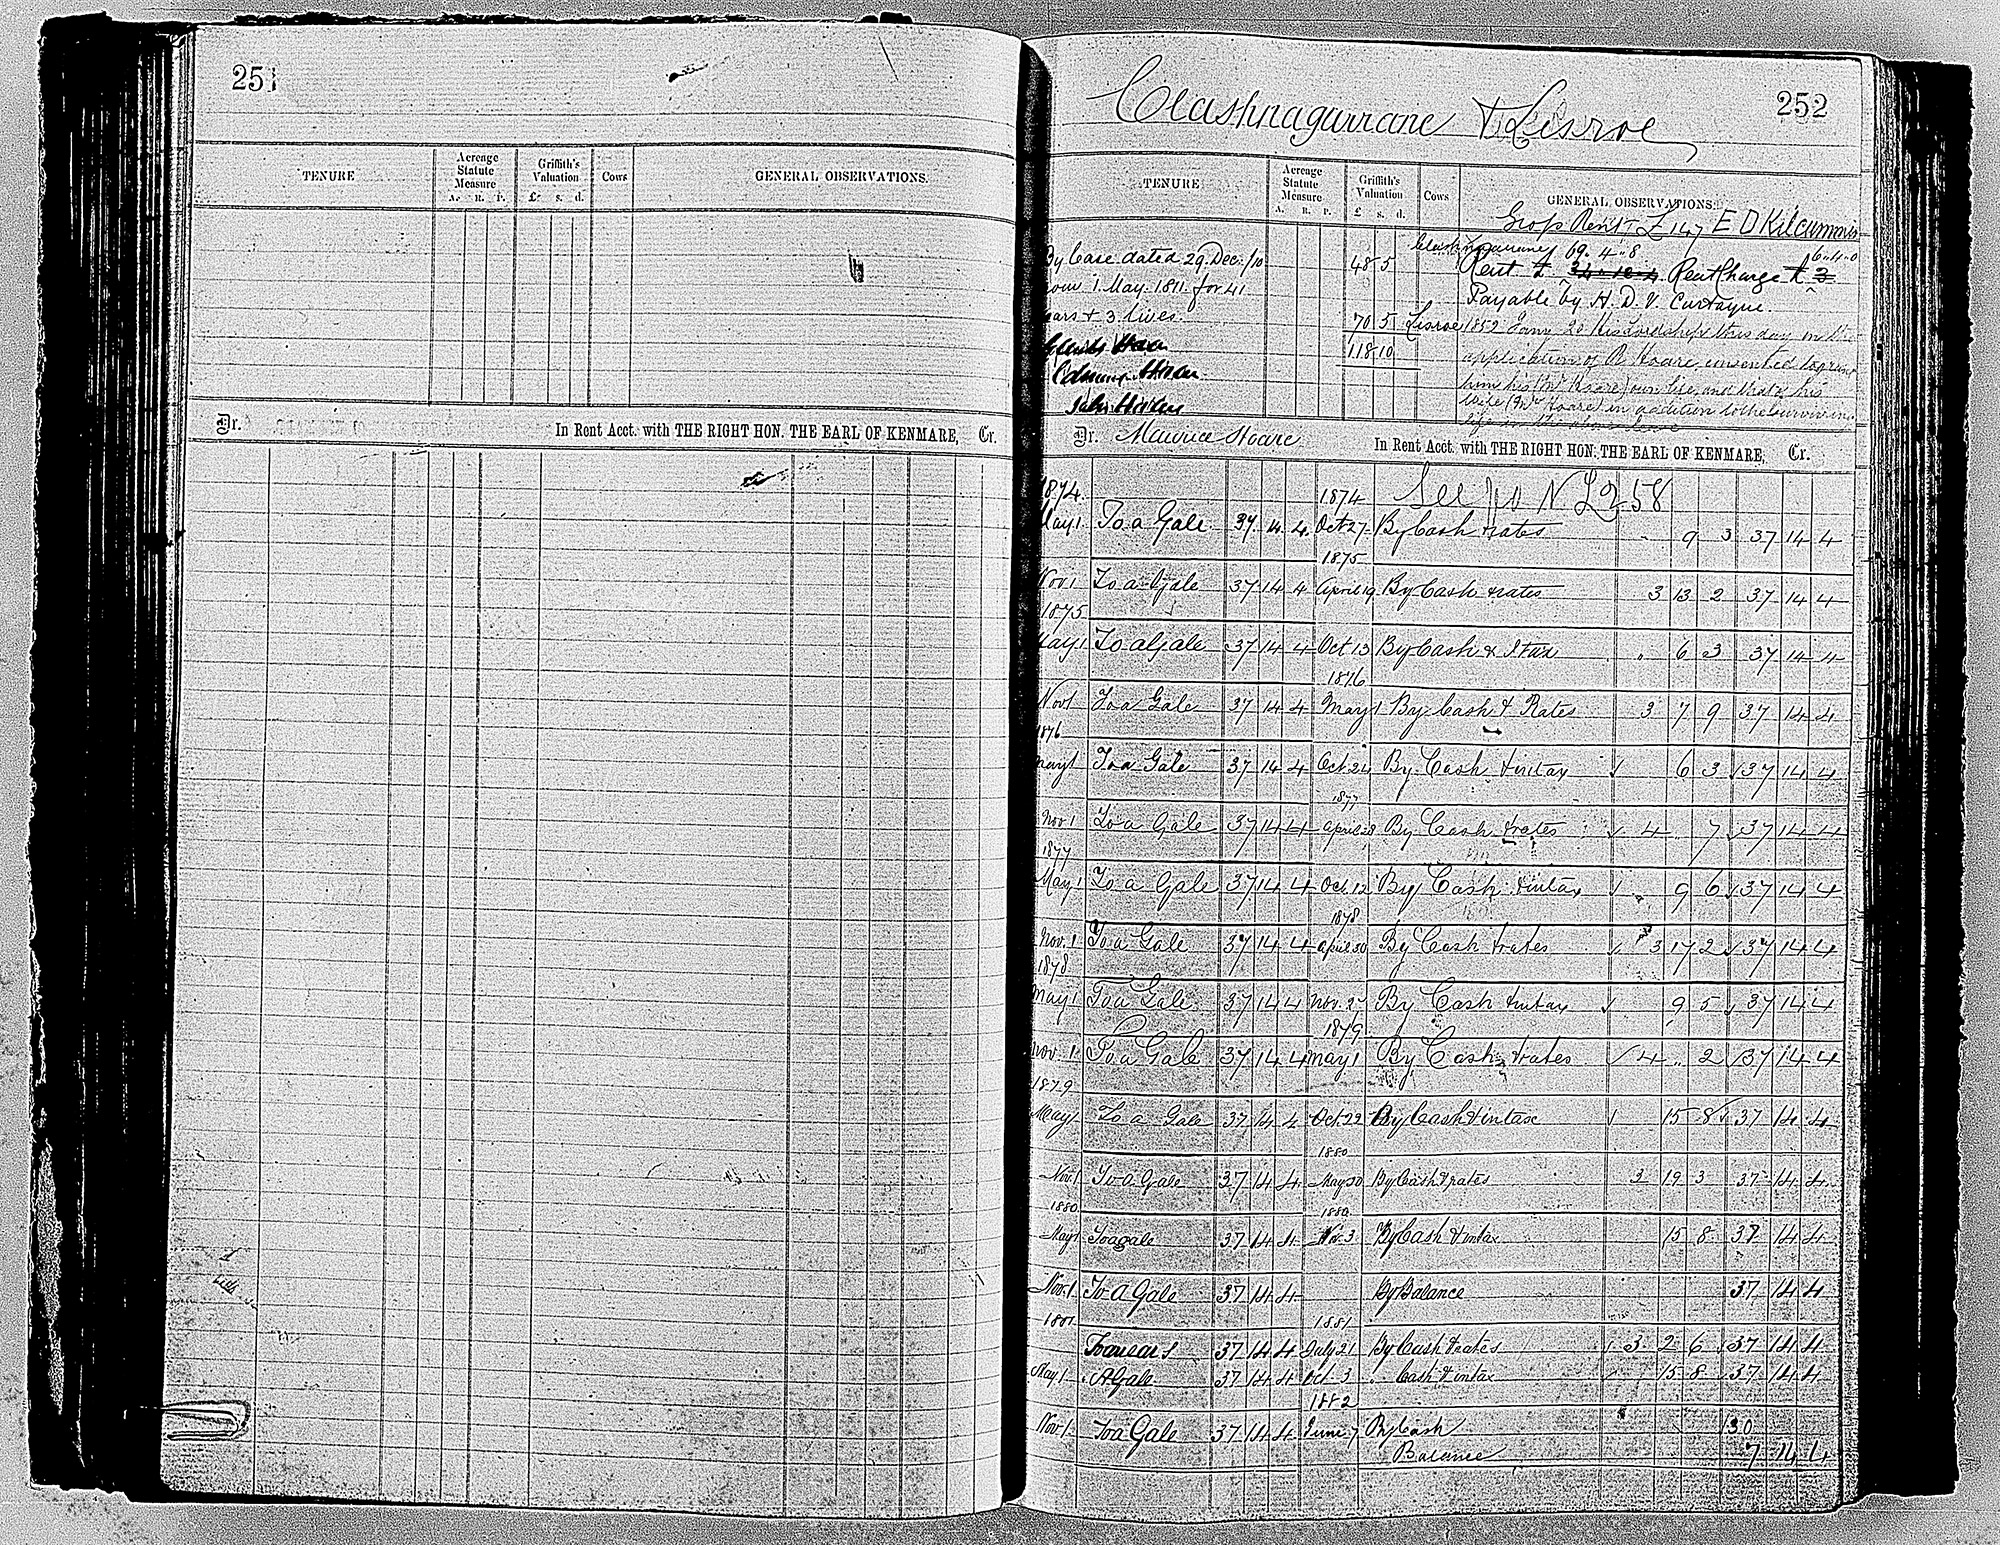 251
TENURE
Acreage Statute Measure
A. R. P.
Griffith's Valuation
£ s. d.
Cows
GENERAL OBSERVATIONS.
Dr. In Rent Acct. with THE RIGHT HON. THE EARL OF KENMARE, Cr.
252
Clashnagurrane & Lisroe
TENURE
Acreage Statute Measure
A. R. P.
Griffith's Valuation
£ s. d.
Cows
GENERAL OBSERVATIONS.
Gross Rent £147 E D Kilcummin
By lease dated 29. Dec: /10
48 5
Clashnagurrane 69. 4. 8
6. 4. 0
Rent £ Rent Charge £ 3
from 1. May. 1811. for 41
Payable by H. D. V. Curtayne.
years & 3 lives.
70 5 Lisroe 1852 Jany 20 His Lordship this day on the
118 10
application of Hoare consented to grant
him his (Mr Hoare) own life and that of his
wife (Mrs Hoare) in addition to the surviving
life in the above lease
Dr. Maurice Hoare In Rent Acct. with THE RIGHT HON. THE EARL OF KENMARE, Cr.
1874. 1874 See No N L 258
May 1. To a Gale. 37. 14. 4. Oct 27 By Cash & rates 9 3 37 14 4
1875
Nov. 1 To a Gale 37 14 4 April 19 By Cash & rates 3 13 2 37 14 4
1875
May 1 To a Gale 37 14 4 Oct 13 By Cash & I Tax 6 3 37 14 4
1876
Nov 1 To a Gale 37 14 4 May 1 By Cash & Rates 3 7 9 37 14 4
1876
May 1 To a Gale 37 14 4 Oct. 24 By Cash & intax 6 3 37 14 4
1877
Nov 1 To a Gale 37 14 4 April 28 By Cash & rates 4 .. 7 37 14 4
1877
May 1 To a Gale 37 14 4 Oct. 12 By Cash & intax 9 6 37 14 4
1878
Nov. 1 To a Gale 37 14 4 April 30 By Cash & rates 3 17 2 37 14 4
1878
May 1 To a Gale 37 14 4 Nov. 27 By Cash & intax 9 5 37 14 4
1879
Nov. 1 To a Gale 37 14 4 May 1 By Cash & rates 4 .. 2 37 14 4
1879
May 1 To a Gale 37 14 4 Oct. 22 By Cash & intax 15 8 37 14 4
1880
Nov. 1 To a Gale 37 14 4 May 20 By Cash & rates 3 19 3 37 14 4
1880 1880
May 1 To a gale 37 14 4 Nov. 3 By Cash & intax 15 8 37 14 4
Nov. 1 To A Gale 37 14 4 By Balance 37 14 4
1881 1881
To arrears 37 14 4 July 21 By Cash & rates 3 2 6 37 14 4
May 1 A Gale 37 14 4 Oct. 3 Cash & intax 15 8 37 14 4
1882
Nov. 1 To a Gale 37 14 4 June 7 By Cash 30
Balance 7 14 4